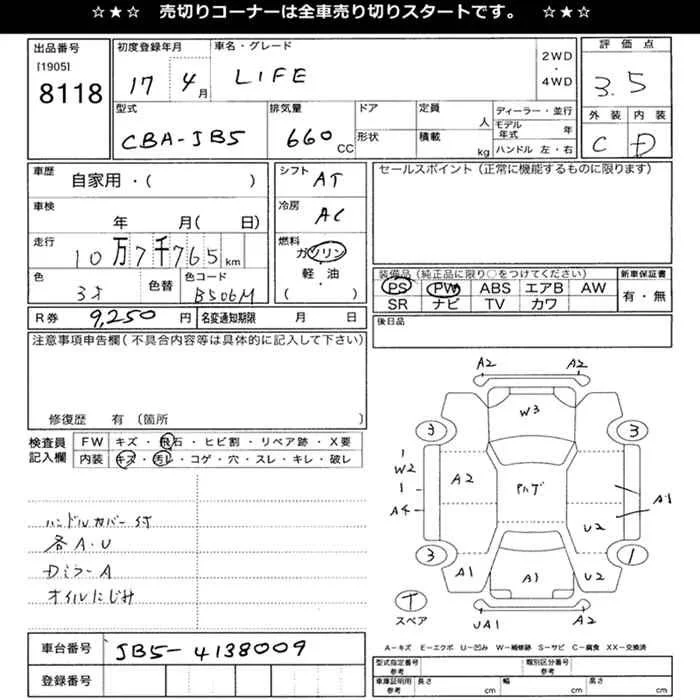 ☆★☆ 売切りコーナーは全車売り切りスタートです。 ☆★☆
出品番号
[1905]
8118
初度登録年月
17 4月
車名・グレード
LIFE
2WD
・
4WD
評価点
3.5
外装 内装
C D
型式
CBA-JB5
排気量
660 CC
ドア
形状
定員
人
積載
kg
ディーラー・並行
モデル年式 年
ハンドル 左・右
車歴
自家用・( )
車検
年 月( 日)
走行
10万7千765km
色
色替
色コード
B506M
シフト
AT
冷房
AC
燃料
ガソリン
・
軽・油
・
( )
セールスポイント(正常に機能するものに限ります)
装備品(純正品に限り○をつけてください)
PS PW ABS エアB AW
SR ナビ TV カワ
新車保証書
有・無
R券 9,250円
名変通知期限 月 日
後日品
注意事項申告欄(不具合内容等は具体的に記入して下さい)
修復歴 有(箇所
検査員
記入欄
FW キズ・飛石・ヒビ割・リペア跡・X要
内装 キズ・汚レ・コゲ・穴・スレ・キレ・破レ
ハンドルカバー付
各A・U
DミラーA
オイルにじみ
A2 A2
W3
3 3
1
W2
1
A4
A2
Pハゲ
A1
U2
3 1
A1 A1 U2
T
スペア
UA1 A2
A−キズ E−エクボ U−凹み W−補修跡 S−サビ C−腐食 XX−交換済
車台番号
JB5-4138009
登録番号
型式指定番号
参考
類別区分番号
参考
車庫証明用
参考
長さ cm
幅 cm
高さ cm